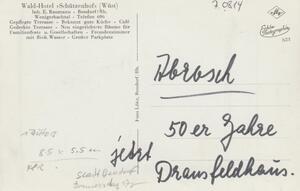 Wald-Hotel »Schützenhof« (Wüst)
Inh. E. Baumann - Bendorf/Rh.
Wenigerbachtal - Telefon 696
Gepflegte Terrasse - Bekannt gute Küche - Café
Gedeckte Terrasse - Neu eingerichtete Räume für
Familienfeste u. Gesellschaften - Fremdenzimmer
mit fließ. Wasser - Großer Parkplatz
7.0814
523
Abrosch
50er Jahre
jetzt
Dransfeldhaus.
8.5 x 5.5 cm
Stadt Bendorf